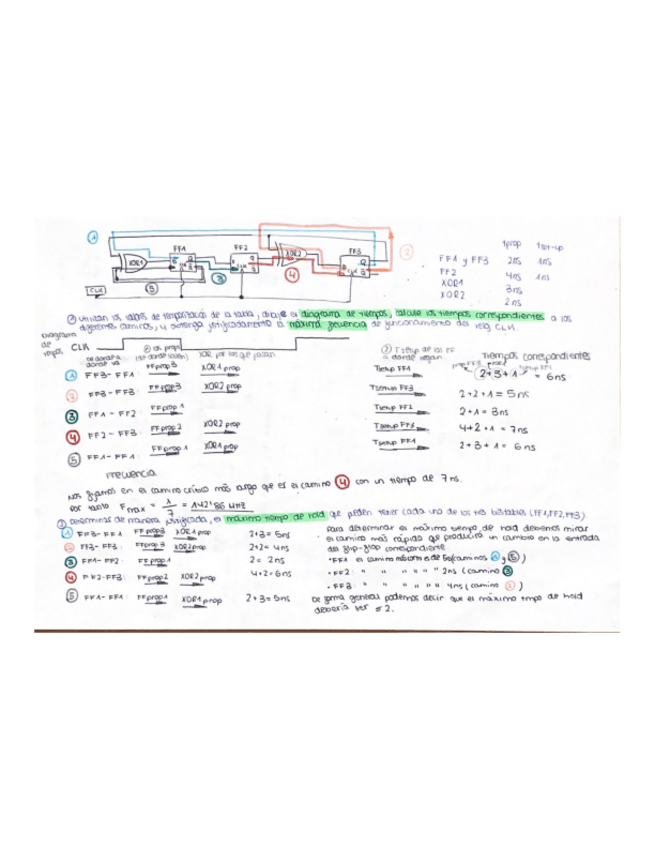 1
FF1 FF2 FF3
XOR1 XOR2
2
3 4 5
CLK
tprop tset-up
FF1 y FF3 2ns 1ns
FF2 4ns 1ns
XOR1 3ns
XOR2 2ns
utilizan los valores de temporización de la tabla, dibuje el diagrama de tiempos, calcule los tiempos correspondientes a los
diferentes caminos, y obtenga justificadamente la máxima frecuencia de funcionamiento del reloj CLK.
Diagrama de CLK
XOR por los que pasan
Tiempos correspondientes
1 FF3-FF1 FFprop3 XOR1prop Tsetup FF1 2+3+1 = 6ns
2 FF3-FF3: FFprop3 XOR2prop Tsetup FF3 2+2+1 = 5ns
3 FF1-FF2 FFprop1 Tsetup FF2 2+1 = 3ns
4 FF2-FF3: FFprop2 XOR2prop Tsetup FF3 4+2+1 = 7ns
5 FF1-FF1: FFprop1 XOR1prop Tsetup FF1 2+3+1 = 6ns
Frecuencia
Nos fijamos en el camino crítico más largo que es el camino 4 con un tiempo de 7ns.
Por tanto Fmax = 1/7 = 142'86 MHz
Determinar de manera justificada, el máximo tiempo de hold que pueden tener cada uno de los tres biestables (FF1,FF2,FF3)
1 FF3-FF1 FFprop3 XOR1prop 2+3= 5ns
2 FF3-FF3: FFprop3 XOR2prop 2+2= 4ns
3 FF1-FF2: FFprop1 2= 2ns
4 FF2-FF3: FFprop2 XOR2prop 4+2=6ns
5 FF1-FF1: FFprop1 XOR1prop 2+3=5ns
Para determinar el máximo tiempo de hold debemos mirar
el camino más rápido que produciría un cambio en la entrada
del flip-flop correspondiente
• FF1 el camino más corto es de 5ns (caminos 1 y 5)
• FF2: " " " " " " 2ns (camino 3)
• FF3: " " " " " " 4ns (camino 2)
De forma general podemos decir que el máximo tmpo de hold
debería ser ≤ 2.